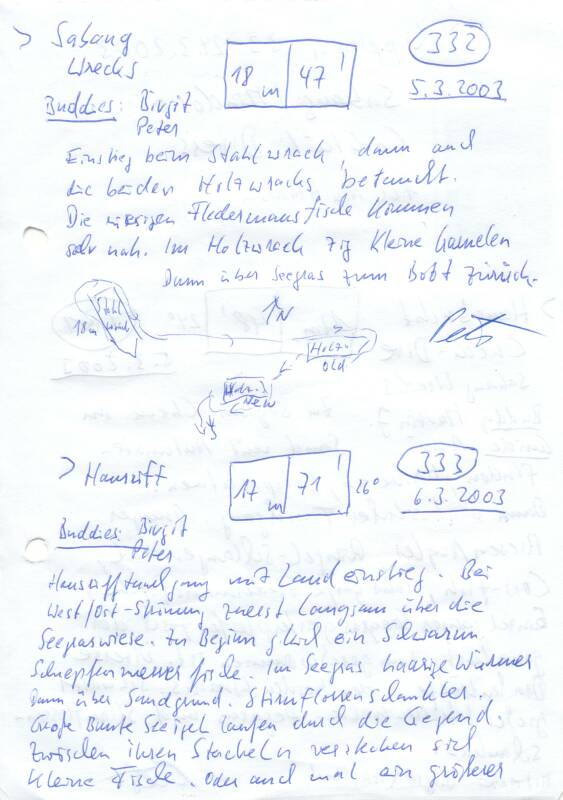 > Sabang
Wrecks
18 m 47'
332
5.3.2003
Buddies: Birgit
Peter
Einstieg beim Stahlwrack, dann auch
die beiden Holzwracks betaucht.
Die riesigen Fledermausfische kommen
sehr nah. Im Holzwrack zig kleine
Dann über Seegras zum Boot zurück.
N
Stahl
wrack
18m
Holzw.
old
Holzw.
New
> Hausriff
17 m 71' 26°
333
6.3.2003
Buddies: Birgit
Peter
Hausrifftauchgang mit Landeinstieg. Bei
West/Ost-Strömung zuerst langsam über die
Seegraswiese. Zu Beginn gleich ein Schwarm
Schnepfenmesserfische. Im Seegras haarige Würmer
Dann über Sandgrund.
Große Bunte Seeigel laufen durch die Gegend.
Zwischen ihren Stacheln verstecken sich
kleine Fische. Oder auch mal ein größerer